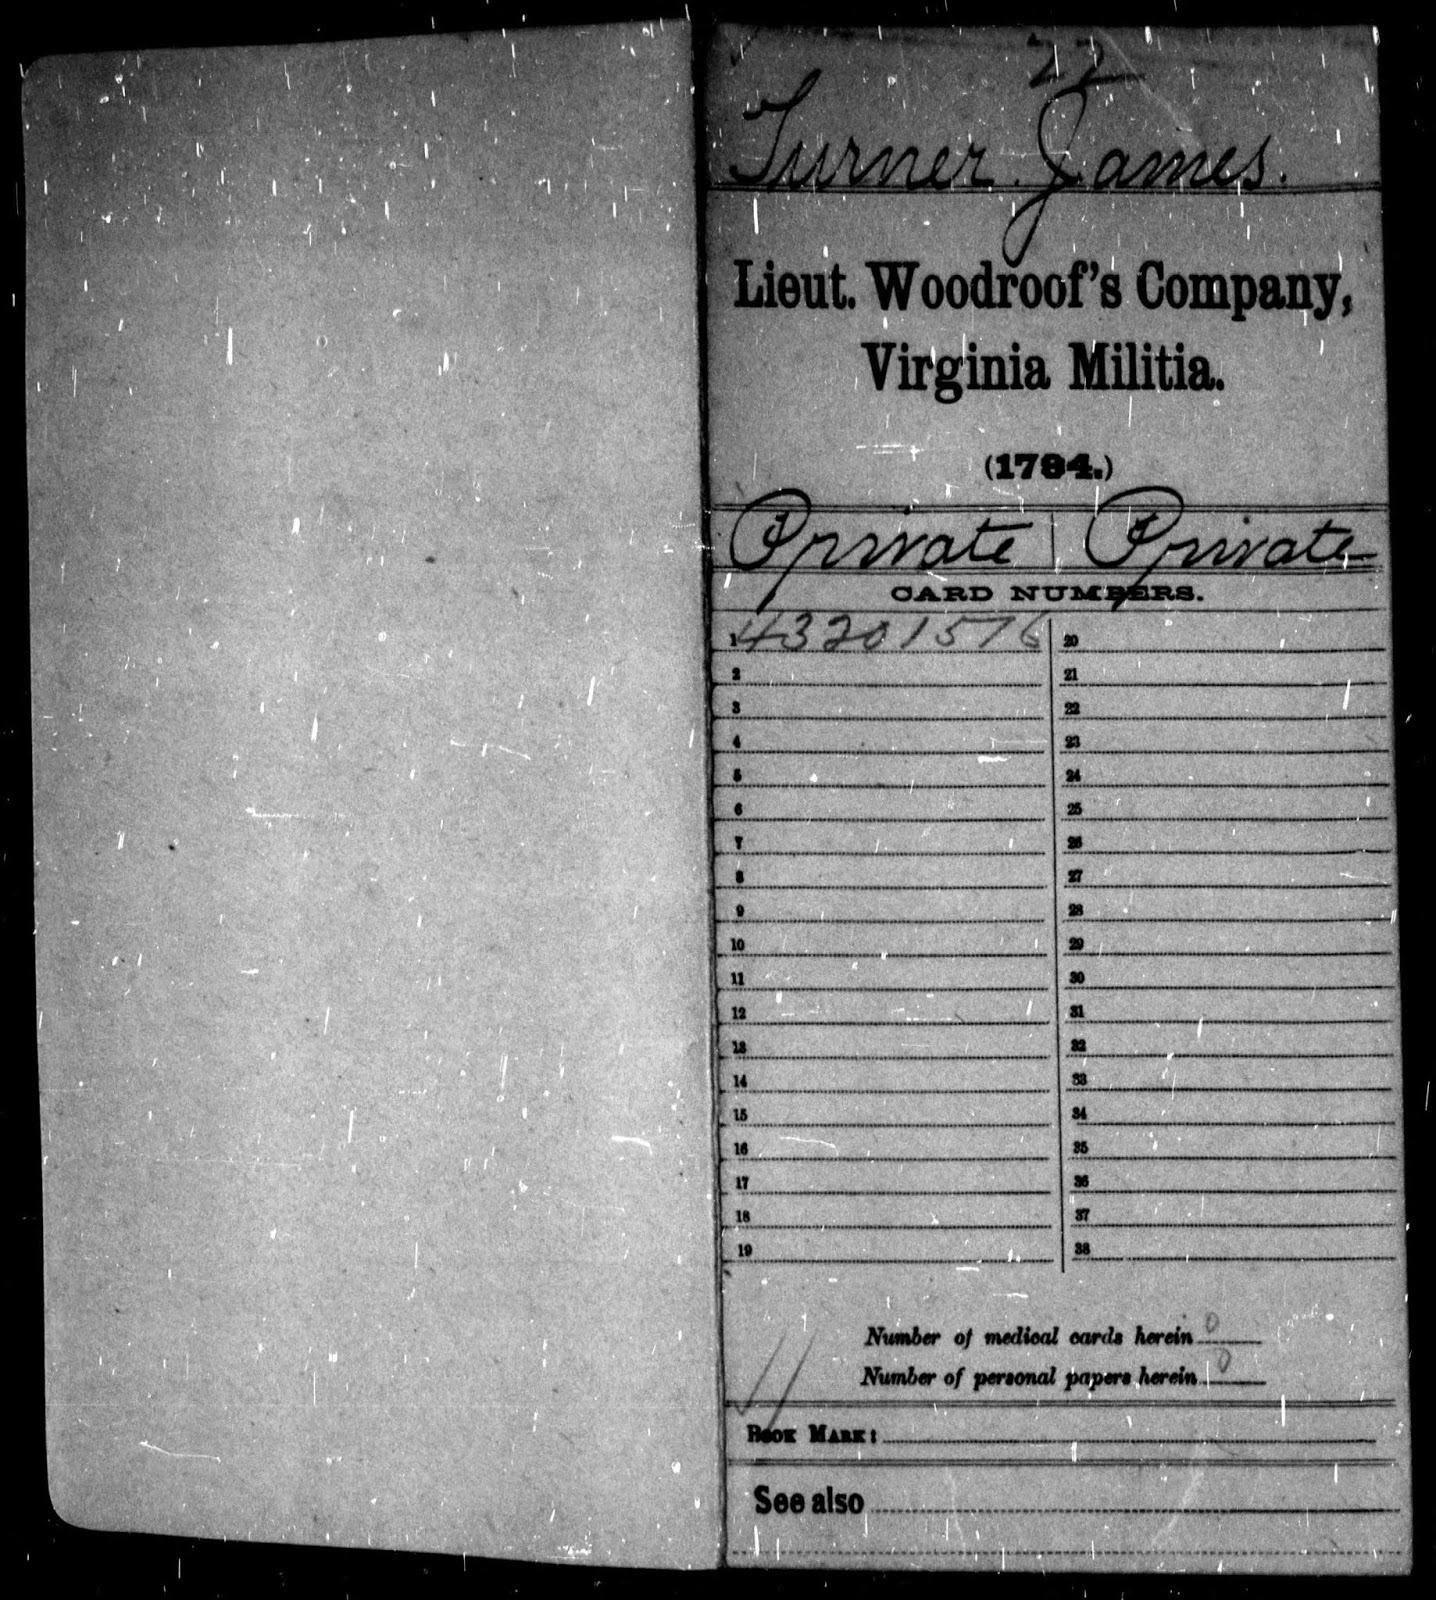 22
Turner. James.
Lieut. Woodroof's Company,
Virginia Militia.
(1794.)
Private Private
CARD NUMBERS.
1 43201576 20
2 21
3 22
4 23
5 24
6 25
7 26
8 27
9 28
10 29
11 30
12 31
13 32
14 33
15 34
16 35
17 36
18 37
19 38
Number of medical cards herein 0
Number of personal papers herein 0
BOOK MARK:
See also